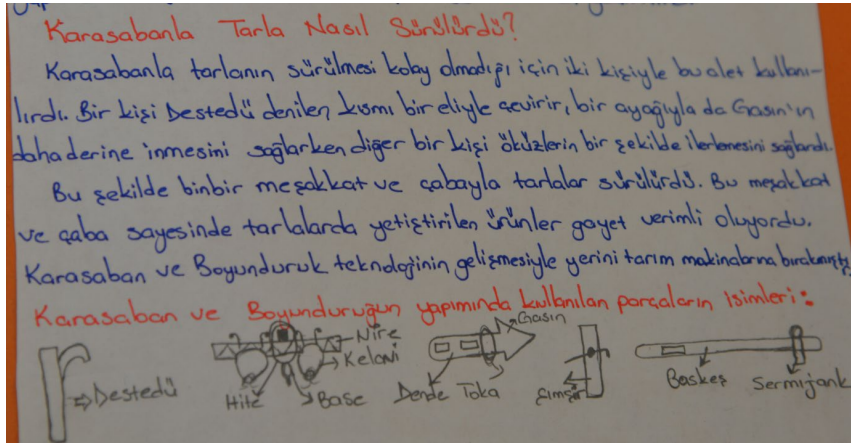 Karasabanla Tarla Nasıl Sürülürdü?
Karasabanla tarlanın sürülmesi kolay olmadığı için iki kişiyle bu alet kullanı-
lırdı. Bir kişi Destedü denilen kısmı bir eliyle çevirir, bir ayağıyla da Gasın'ın
daha derine inmesini sağlarken diğer bir kişi öküzlerin bir şekilde ilerlemesini sağlardı.
Bu şekilde binbir meşakkat ve çabayla tarlalar sürülürdü. Bu meşakkat
ve çaba sayesinde tarlalarda yetiştirilen ürünler gayet verimli oluyordu.
Karasaban ve Boyunduruk teknolojinin gelişmesiyle yerini tarım makinalarına bırakmıştı
Karasaban ve Boyunduruğun yapımında kullanılan parçaların isimleri:
Destedü
Nire
Kelani
Hite
Base
Gasın
Dende
Toka
Şimşir
Baskeş
Sermijank